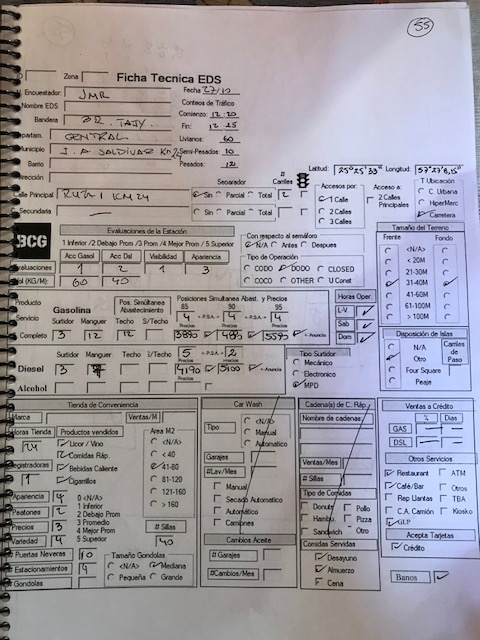 55
Zona Ficha Tecnica EDS
Encuestador: JMR Fecha 27/10
Nombre EDS Conteos de Tráfico
Bandera BR. TAJY. Comienzo: 12.20
Departam. CENTRAL Fin: 12.25
Livianos: 60
Municipio J. A SALDIVAR Km 24 Semi-Pesados: 10
Barrio Pesados: 12
Dirección Latitud: 25°25'33" Longitud: 57°27'8,15"
Calle Principal RUTA 1 KM 24
C. Secundaria —
Separador # Carriles
Sin Parcial Total 2
Sin Parcial Total
Accesos por:
1 Calle
2 Calles
3 Calles
Acceso a:
2 Calles Principales
T Ubicación
C. Urbana
HiperMerc
Carretera
BCG
Evaluaciones de la Estación
1 Inferior /2 Debajo Prom /3 Prom /4 Mejor Prom / 5 Superior
Acc Gasol Acc Dsl Visibilidad Apariencia
Evaluaciones 1 2 1 3
Vol (KG/M): 60 40
Con respecto al semáforo
N/A Antes Despues
Tipo de Operación
CODO DODO CLOSED
COCO OTHER U Const
Tamaño del Terreno
Frente Fondo
<N/A>
< 20M
21-30M
31-40M
41-60M
61-100M
> 100M
Producto
Servicio
Gasolina
Pos. Simúltanea Abastecimiento
Posiciones Simultanea Abast. y Precios
85 90 95
4 <P.S.A.> 4 <P.S.A.> 4
Surtidor Manguer Techo S/Techo Precios Precios Precios
Completo 3 12 12 3895 4895 5595 <Anuncio
Surtidor Manguer Techo S/Techo 5 <P.S.A.> 2
Precios Precios
Diesel 3 4190 5100 <Anuncio
Alcohol
Horas Oper.
L-V
Sab
Dom
Tipo Surtidor
Mecánico
Electronico
MPD
Disposición de Islas
N/A
Otro
Four Square
Peaje
Carriles de Paso
Tienda de Conveniencia
Marca Ventas/M
Horas Tienda 24
Productos vendidos
Licor / Vino
Comidas Ráp.
Bebidas Caliente
Cigarrillos
Registradoras 1
Area M2
<N/A>
< 40
41-80
81-120
121-160
> 160
Apariencia 4
Peatones 2
Precios 3
Variedad 4
0 <N/A>
1 Inferior
2 Debajo Prom
3 Promedio
4 Mejor Prom
5 Superior
# Sillas
40
Puertas Neveras 10
Estacionamientos 4
Gondolas
Tamaño Gondolas
<N/A> Mediana
Pequeña Grande
Car Wash
Tipo
<N/A>
Manual
Automatico
Garajes
#Lav/Mes
Manual
Secado Automatico
Automatico
Camiones
Cambios Aceite
# Garajes
#Cambios/Mes
Cadena(s) de C. Ráp.
Nombre de cadenas
Ventas/Mes
# Sillas
Tipo de Comidas
Donuts Pollo
Hambu. Pizza
Sandwich Otro
Comidas Servidas
Desayuno
Almuerzo
Cena
Ventas a Crédito
% Dias
GAS — —
DSL — —
Otros Servicios
Restaurant ATM
Café/Bar Otros
Rep Llantas TBA
C.A. Camión Kiosko
GLP
Acepta Tarjetas
Crédito
Banos